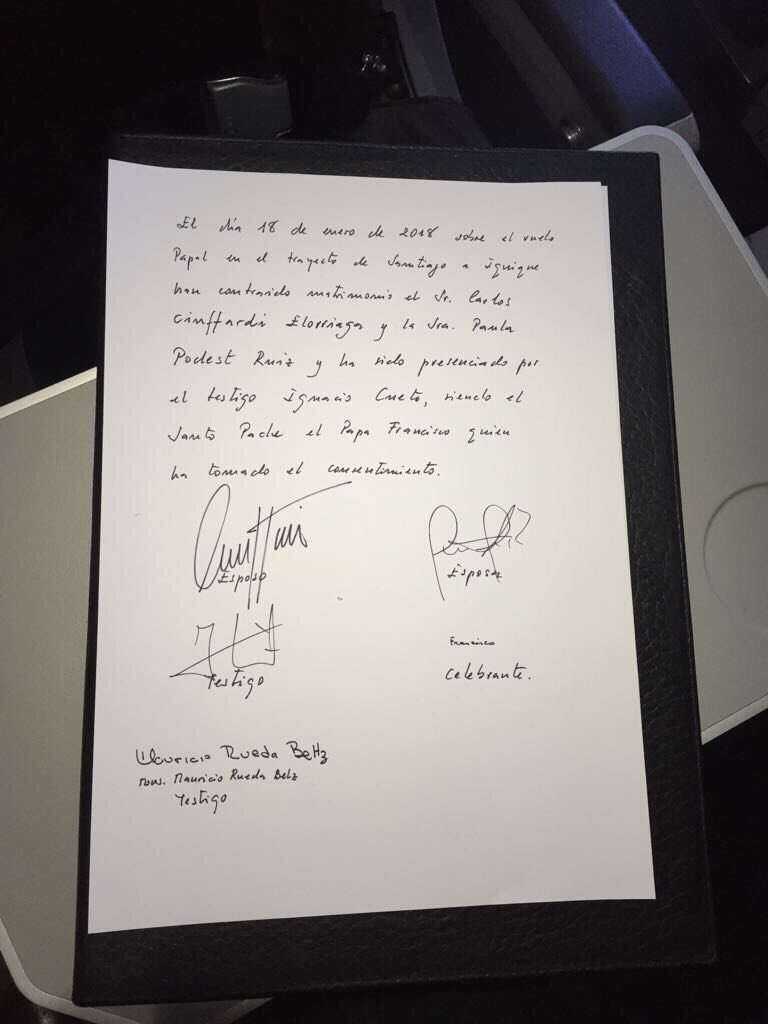 El día 18 de enero de 2018 sobre el vuelo
Papal en el trayecto de Santiago a Iquique
han contraido matrimonio el Sr. Carlos
Ciuffardi Elorriaga y la Sra. Paula
Podest Ruiz y ha sido presenciado por
el testigo Ignacio Cueto, siendo el
Santo Padre el Papa Francisco quien
ha tomado el consentimiento.
Esposo
Esposa
Francisco
Testigo
celebrante.
Mauricio Rueda Beltz
Mons. Mauricio Rueda Beltz
Testigo